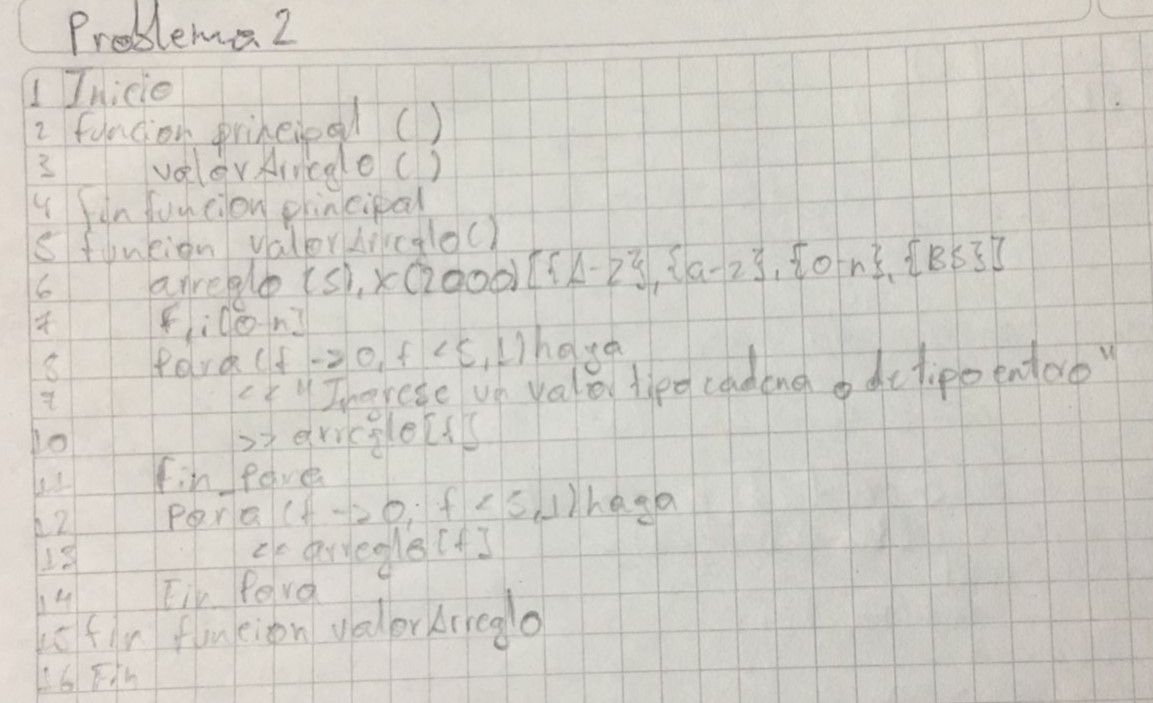 Problema 2
1 Inicio
2 funcion principal ()
3 valorArreglo ()
4 fin funcion principal
5 funcion valorArreglo()
6 arreglo (5), x(2000) [{A-Z}, {a-z}, {0-n}, {BS}]
7 f, i [0-n]
8 Para (f -> 0, f < 5, 1) haga
9 << "Ingrese un valor tipo cadena o de tipo entero"
10 >> arreglo [f]
11 fin_Para
12 Para (f -> 0; f < 5, 1) haga
13 << arreglo [f]
14 Fin_Para
15 fin funcion valorArreglo
16 Fin